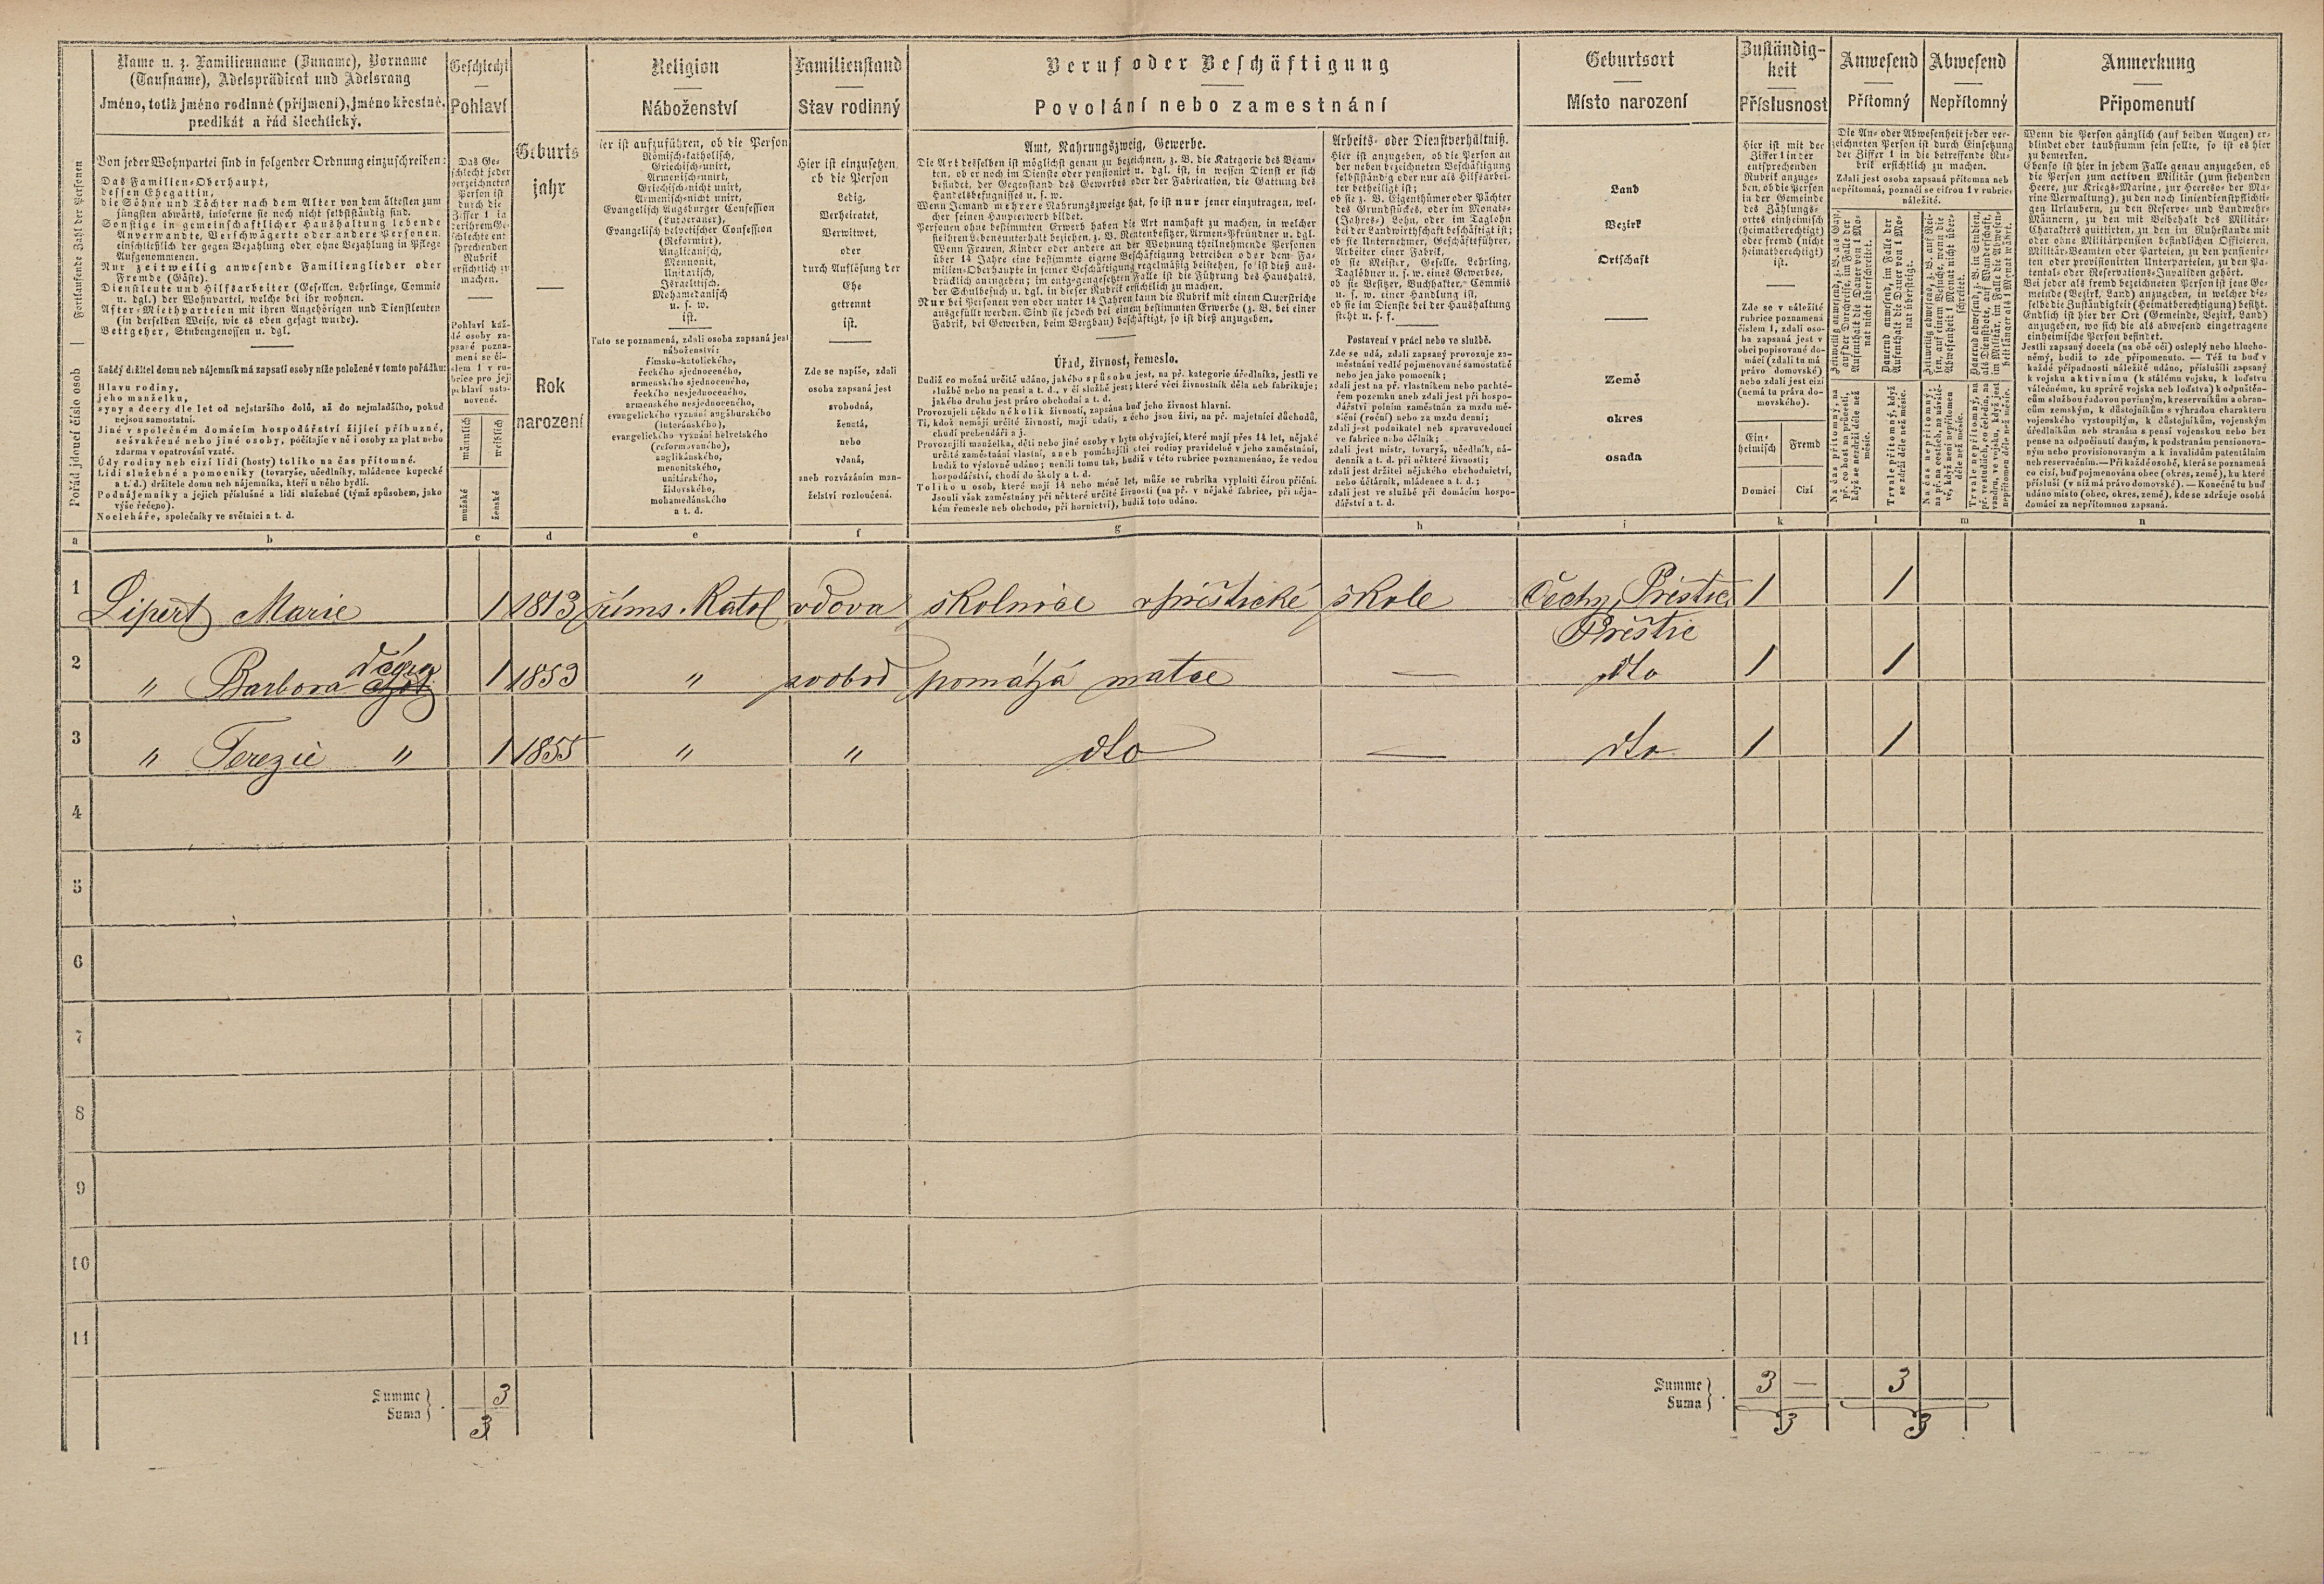 Name u. z. Familienname (Zuname), Vorname
(Taufname), Adelsprädicat und Adelsrang
Jméno, totiž jméno rodinné (příjmení), jméno křestné,
predikát a řád šlechtický.
Von jeder Wohnpartei sind in folgender Ordnung einzuschreiben:
Das Familien-Oberhaupt,
dessen Ehegattin,
die Söhne und Töchter nach dem Alter von dem ältesten zum
jüngsten abwärts, insoferne sie noch nicht selbstständig sind.
Sonstige in gemeinschaftlicher Haushaltung lebende
Anverwandte, Verschwägerte oder andere Personen,
einschließlich der gegen Bezahlung oder ohne Bezahlung in Pflege
Aufgenommenen.
Nur zeitweilig anwesende Familienglieder oder
Fremde (Gäste).
Dienstleute und Hilfsarbeiter (Gesellen, Lehrlinge, Commis
u. dgl.) der Wohnpartei, welche bei ihr wohnen.
After-Miethparteien mit ihren Angehörigen und Dienstleuten
(in derselben Weise, wie es oben gesagt wurde).
Bettgeher, Stubengenossen u. dgl.
Každý držitel domu neb nájemník má zapsati osoby níže položené v tomto pořádku:
Hlavu rodiny,
jeho manželku,
syny a dcery dle let od nejstaršího dolů, až do nejmladšího, pokud
nejsou samostatni.
Jiné v společném domácím hospodářství žijící příbuzné,
sešvakřené nebo jiné osoby, počítajíc v ně i osoby za plat nebo
zdarma v opatrování vzaté.
Údy rodiny neb cizí lidi (hosty) toliko na čas přítomné.
Lidi služebné a pomocníky (tovaryše, učedlníky, mládence kupecké
a t. d.) držitele domu neb nájemníka, kteří u něho bydlí.
Podnájemníky a jejich příslušné a lidi služebné (týmž spůsobem, jako
výše řečeno).
Nocleháře, společníky ve světnici a t. d.
Geschlecht
Pohlaví
Das Ge-
schlecht jeder
verzeichneten
Person ist
durch die
Ziffer 1 in
der ihrem Ge-
schlechte ent-
sprechenden
Rubrik
ersichtlich zu
machen.
Pohlaví kaž-
dé osoby za-
psané pozna-
mená se čí-
slem 1 v ru-
brice pro její
pohlaví usta-
novené.
männlich
weiblich
mužské
ženské
Geburts
jahr
Rok
narození
Religion
Náboženství
Hier ist aufzuführen, ob die Person
Römisch-katholisch,
Griechisch-unirt,
Armenisch-unirt,
Griechisch-nicht unirt,
Armenisch-nicht unirt,
Evangelisch Augsburger Confession
(Lutheraner),
Evangelisch helvetischer Confession
(Reformirt),
Anglicanisch,
Mennonit,
Unitarisch,
Israelitisch,
Mohamedanisch
u. s. w.
ist.
Tuto se poznamená, zdali osoba zapsaná jest
náboženství:
římsko-katolického,
řeckého sjednoceného,
armenského sjednoceného,
řeckého nesjednoceného,
armenského nesjednoceného,
evangelického vyznání augšburského
(luteránského),
evangelického vyznání helvetského
(reformovaného),
anglikánského,
menonitského,
unitárského,
židovského,
mohamedánského
a t. d.
Familienstand
Stav rodinný
Hier ist einzusetzen,
ob die Person
Ledig,
Verheiratet,
Verwitwet,
oder
durch Auflösung der
Ehe
getrennt
ist.
Zde se napíše, zdali
osoba zapsaná jest
svobodná,
ženatá,
nebo
vdaná,
aneb rozvázáním man-
želství rozloučená.
Beruf oder Beschäftigung
Povolání nebo zamestnání
Amt, Nahrungszweig, Gewerbe.
Die Art desselben ist möglichst genau zu bezeichnen, z. B. die Kategorie des Beam-
ten, ob er noch im Dienste oder pensionirt u. dgl. ist, in wessen Dienst er sich
befindet, der Gegenstand des Gewerbes oder der Fabrication, die Gattung des
Handelsbefugnisses u. s. w.
Wenn Jemand mehrere Nahrungszweige hat, so ist nur jener einzutragen, wel-
cher seinen Haupterwerb bildet.
Personen ohne bestimmten Erwerb haben die Art namhaft zu machen, in welcher
sie ihren Lebensunterhalt beziehen, z. B. Rentenbesitzer, Armen-Pfründner u. dgl.
Wenn Frauen, Kinder oder andere an der Wohnung theilnehmende Personen
über 14 Jahre eine bestimmte eigene Beschäftigung betreiben oder dem Fa-
milien-Oberhaupte in seiner Beschäftigung regelmäßig beistehen, so ist dieß aus-
drücklich anzugeben; im entgegengesetzten Falle ist die Führung des Haushalts,
der Schulbesuch u. dgl. in dieser Rubrik ersichtlich zu machen.
Nur bei Personen von oder unter 14 Jahren kann die Rubrik mit einem Querstriche
ausgefüllt werden. Sind sie jedoch bei einem bestimmten Erwerbe (z. B. bei einer
Fabrik, bei Gewerben, beim Bergbau) beschäftigt, so ist dieß anzugeben.
Úřad, živnost, řemeslo.
Budiž co možná určitě udáno, jakého spůsobu jest, na př. kategorie úředlníka, jestli ve
službě nebo na pensi a t. d., v čí službě jest; které věci živnostník dělá neb fabrikuje;
jakého druhu jest právo obchodní a t. d.
Provozujeli někdo několik živností, zapsána buď jeho živnost hlavní.
Ti, kdož nemají určité živnosti, mají udati, z čeho jsou živi, na př. majetníci důchodů,
chudí prebendáři a j.
Provozujíli manželka, děti nebo jiné osoby v bytu obývající, které mají přes 14 let, nějaké
určité zaměstnání vlastní, aneb pomáhajíli otci rodiny pravidelně v jeho zaměstnání,
budiž to výslovně udáno; neníli tomu tak, budiž v této rubrice poznamenáno, že vedou
hospodářství, chodí do školy a t. d.
Toliko u osob, které mají 14 nebo méně let, může se rubrika vyplniti čárou příční.
Jsouli však zaměstnány při některé určité živnosti (na př. v nějaké fabrice, při něja-
kém řemesle neb obchodu, při hornictví), budiž toto udáno.
Arbeits- oder Dienstverhältniß.
Hier ist anzugeben, ob die Person an
der neben bezeichneten Beschäftigung
selbstständig oder nur als Hilfsarbei-
ter betheiligt ist;
ob sie z. B. Eigenthümer oder Pächter
des Grundstückes, oder im Monats-
(Jahres-) Lohn, oder im Taglohn
bei der Landwirthschaft beschäftigt ist;
ob sie Unternehmer, Geschäftsführer,
Arbeiter einer Fabrik,
ob sie Meister, Geselle, Lehrling,
Taglöhner u. s. w. eines Gewerbes,
ob sie Besitzer, Buchhalter, Commis
u. s. w. einer Handlung ist,
ob sie im Dienste bei der Haushaltung
steht u. s. f.
Postavení v práci nebo ve službě.
Zde se udá, zdali zapsaný provozuje za-
městnání vedlé pojmenované samostatně
nebo jen jako pomocník;
zdali jest na př. vlastníkem nebo pachté-
řem pozemku aneb zdali jest při hospo-
dářství polním zaměstnán za mzdu mě-
síční (roční) nebo za mzdu denní;
zdali jest podnikatel neb spravovedoucí
ve fabrice nebo dělník;
zdali jest mistr, tovaryš, učedlník, ná-
denník a t. d. při některé živnosti;
zdali jest držitel nějakého obchodnictví,
nebo účtárník, mládenec a t. d.;
zdali jest ve službě při domácím hospo-
dářství a t. d.
Geburtsort
Místo narození
Land
Bezirk
Ortschaft
Země
okres
osada
Zuständig-
keit
Příslusnost
Hier ist mit der
Ziffer 1 in der
entsprechenden
Rubrik anzuge-
ben, ob die Person
in der Gemeinde
des Zählungs-
ortes einheimisch
(heimatberechtigt)
oder fremd (nicht
heimatberechtigt)
ist.
Zde se v náležité
rubrice poznamená
číslem 1, zdali oso-
ba zapsaná jest v
obci popisované do-
mácí (zdali tu má
právo domovské)
nebo zdali jest cizí
(nemá tu práva do-
movského).
Ein-
heimisch
Fremd
Domácí
Cizí
Anwesend
Přítomný
Abwesend
Nepřítomný
Die An- oder Abwesenheit jeder ver-
zeichneten Person ist durch Einsetzung
der Ziffer 1 in die betreffende Ru-
brik ersichtlich zu machen.
Zdali jest osoba zapsaná přítomna neb
nepřítomna, poznačí se cifrou 1 v rubrice
náležité.
Zeitweilig anwesend, z. B. als Gast,
auf der Durchreise, im Falle der
Aufenthalt die Dauer von 1 Mo-
nat nicht überschreitet.
Dauernd anwesend, im Falle der
Aufenthalt die Dauer von 1 Mo-
nat übersteigt.
Zeitweilig abwesend, z. B. auf Rei-
sen, auf einem Besuche, wenn die
Abwesenheit 1 Monat nicht über-
schreitet.
Dauernd abwesend, z. B. in Studien,
als Dienstbote, auf Wanderschaft,
im Militär, im Falle die Abwesen-
heit länger als 1 Monat währt.
Na čas přítomný, na
př. co host na průcestí,
když se nezdrží déle než
měsíc.
Trvale přítomný, když
se zdrží déle než měsíc.
Na čas nepřítomný,
na př. na cestách, na návště-
vě, když není nepřítomen
déle než měsíc.
Trvale nepřítomný, na
př. ve studiích, co čeledín, na
vandru, ve vojsku, když jest
nepřítomen déle než měsíc.
Anmerkung
Připomenutí
Wenn die Person gänzlich (auf beiden Augen) er-
blindet oder taubstumm sein sollte, so ist es hier
zu bemerken.
Ebenso ist hier in jedem Falle genau anzugeben, ob
die Person zum activen Militär (zum stehenden
Heere, zur Kriegs-Marine, zur Heeres- oder Ma-
rine Verwaltung), zu den noch liniendienstpflichti-
gen Urlaubern, zu den Reserve- und Landwehr-
Männern, zu den mit Beibehalt des Militär-
Charakters quittirten, zu den im Ruhestande mit
oder ohne Militärpension befindlichen Officieren,
Militär-Beamten oder Parteien, zu den pensionir-
ten oder provisionirten Unterparteien, zu den Pa-
tental- oder Reservations-Invaliden gehört.
Bei jeder als fremd bezeichneten Person ist jene Ge-
meinde (Bezirk, Land) anzugeben, in welcher die-
selbe die Zuständigkeit (Heimatberechtigung) besitzt.
Endlich ist hier der Ort (Gemeinde, Bezirk, Land)
anzugeben, wo sich die als abwesend eingetragene
einheimische Person befindet.
Jestli zapsaný docela (na obě oči) osleplý nebo hlucho-
němý, budiž to zde připomenuto. — Též tu buď v
každé případnosti náležitě udáno, příslušíli zapsaný
k vojsku aktivnímu (k stálému vojsku, k loďstvu
válečnému, ku správě vojska neb loďstva) k odpuštěn-
cům službou řadovou povinným, k reservníkům a obran-
cům zemským, k důstojníkům s výhradou charakteru
vojenského vystouplým, k důstojníkům, vojenským
úředlníkům neb stranám s pensí vojenskou nebo bez
pense na odpočinutí daným, k podstranám pensionova-
ným nebo provisionovaným a k invalidům patentálním
neb reservačním. — Při každé osobě, která se poznamená
co cizí, buď pojmenována obec (okres, země), ku které
přísluší (v níž má právo domovské). — Konečně tu buď
udáno místo (obec, okres, země), kde se zdržuje osoba
domácí za nepřítomnou zapsaná.
Fortlaufende Zahl der Personen
Pořád jdoucí číslo osob
a b c d e f g h i k l m n
1 Lipert Marie 1 1813 říms. Katol vdova školnice v přeštické škole Čechy, Přestic 1 1
Přeštic
dcera
2 " Barbora 1 1853 " svobod pomáhá matce — dto 1 1
3 " Terezie " 1 1855 " " dto — dto 1 1
4
5
6
7
8
9
10
11
Summe
Suma
3
3
Summe
Suma
3 — 3
3 3